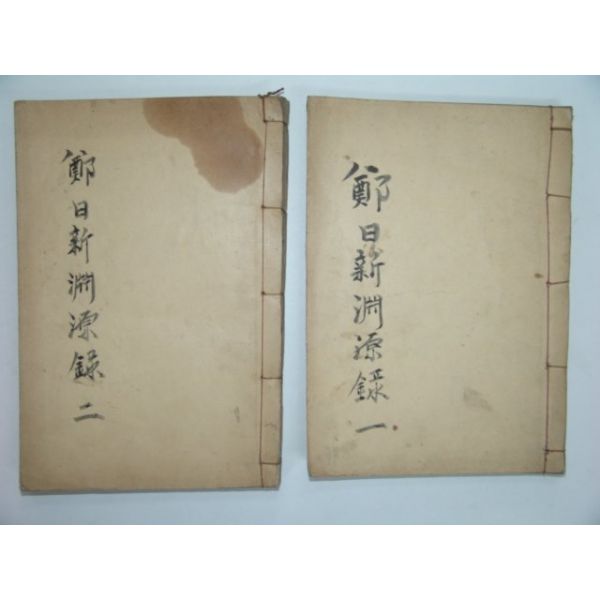 鄭日新淵源錄 一
鄭日新淵源錄 二